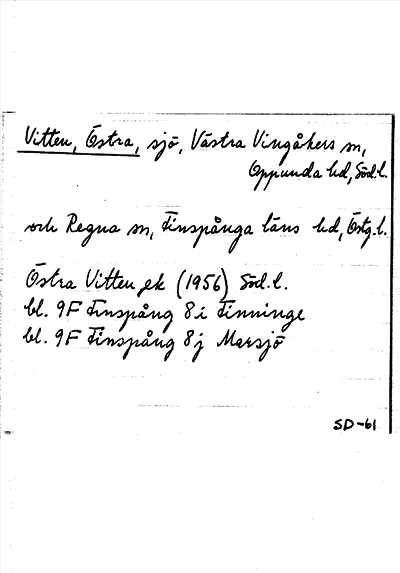 Vitten, Östra, sjö, Västra Vingåkers sn,
Oppunda hd, Söd.l.
och Regna sn, Finspånga läns hd, Östg.l.
Östra Vitten ek (1956) Söd.l.
bl. 9F Finspång 8i Finninge
bl. 9F Finspång 8j Marsjö
SD-61